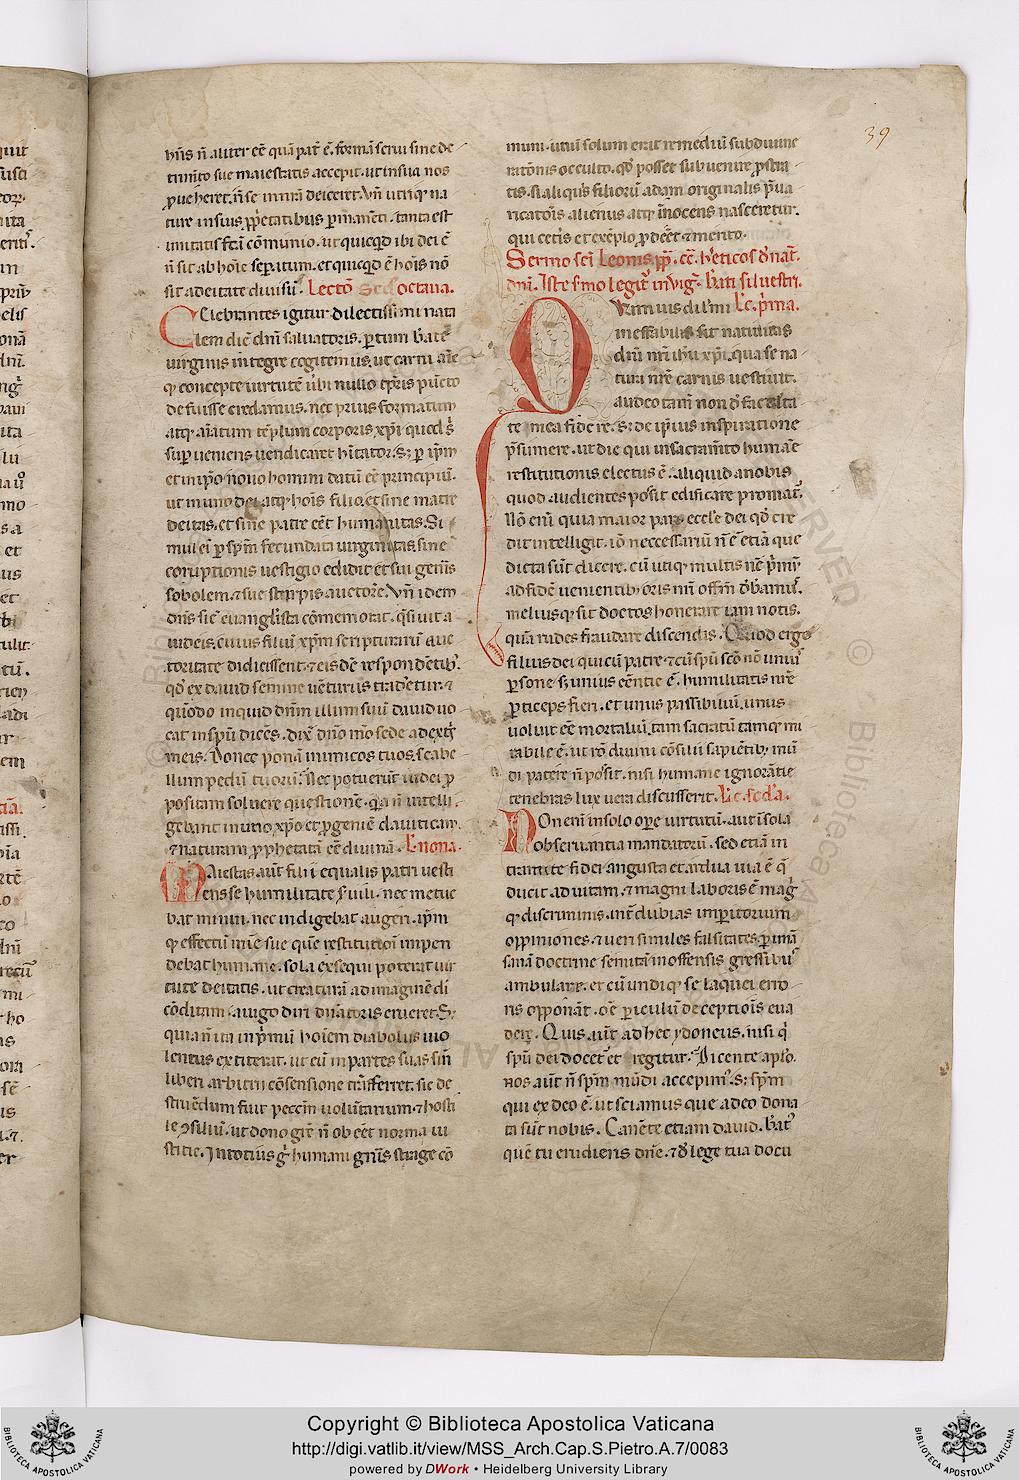 39
hñs ñ aliter eẽ quã pat̃ ẽ. formã serui sine de
trim̃to sue maiestatis accepit. ut in sua nos
ꝓueheret. ñ se in nr̃a deiceret. Vñ utriꝗ na
ture in suis ꝓp̃etatibus ꝑmanẽti. tanta est
unitatis fc̃a cõmunio. ut quicqd̃ ibi dei ẽ
ñ sit ab hoĩe seꝑatum. et quicqd̃ ẽ hoĩs nõ
sit a deitate diuisũ. Lectõ octaua.
Celebrantes igitur dilectissimi nata
lem diẽ dñi saluatoris. ꝑtum b̃atẽ
uirginis integre cogitemus. ut carni aĩe
ꝗ concepte uirtutẽ ũbi nullo tẽpris pũcto
defuisse credamus. nec prius formatum
atꝗ aĩatum tẽplum corporis xp̃i quod s̃
superueniens uendicaret h̃itator. s; ꝑ ip̃m
et in ip̃o nouo homini datũ eẽ principiũ.
ut in uno dei atꝗ hoĩs filio. et sine matre
deitas. et sine patre eẽt humanitas. Si
mul ei ꝑ sp̃m fecundata uirginitas. sine
coruptionis uestigio edidit et sui genĩs
sobolem. ⁊ sue stirpis auctorẽ. Vñ idem
dñs sic̃ euanglĩsta cõmemorat. q̃siuit a
iudeis. cuius filiũ xp̃m scripturarũ auc
toritate didicissent. ⁊ eis de respondẽtib;.
qd̃ ex dauid semine uẽturus tradetur. ⁊
qũodo inquid dñm illum suũ dauid uo
cat in sp̃u dicẽs. dix̃ dñs dño mõ sede a dext̃
meis. Donec ponã inimicos tuos. scabe
llum pedũ tuorũ. Nec potuerũt iudei ꝓ
positam soluere questionẽ. qa ñ intelli
gebant in uno xp̃o et ꝓgeniẽ dauiticam.
⁊ naturam ꝓphetatã eẽ diuinã. L nona.
Maiestas aut̃ filii equalis patri uesti
ens se humilitate s̃uili. nec metue
bat minui. nec indigebat augeri. ip̃m
ꝗ effectũ mĩe sue quẽ restitutioĩ impen
debat humane. sola exsequi poterat uir
tute deitatis. ut creaturã ad imaginẽ di
cõditam. a iugo diri dñatoris erueret. S;
quia ñ ita in p̃mũ hoĩem diabolus uio
lentus extiterat. ut eũ in partes suas siñ
liberi arbitrii cõsensione trãsferret. sic de
struẽdum fuit pecc̃m uolũtarium. ⁊ hosti
le ꝯsiliũ. ut dono gr̃e ñ obeẽt norma iu
stitie. In totius g̃ humani gnĩs strage cõ
muni. unũ solum erat remediũ sub diuine
ratõnis occulto. qd̃ posset subuenire ꝓstra
tis. si aliquis filiorũ adam originalis p̃ua
ricatõis alienus atꝗ ĩnocens nasceretur.
qui cet̃is et exẽplo ꝓdeẽt ⁊ merito.
Sermo sc̃i Leonis pp̃. cẽ. h̃eticos d̃ nat̃.
dñi. Iste s̃mo legit̃ in uig̃. b̃ati siluestri.
Quamuis dil̃mi Lc̃. p̃ma.
ineffabilis sit natiuitas
dñi nr̃i ih̃u xp̃i. qua se na
tura nr̃e carnis uestiuit.
audeo tam̃ non d̃ faculta
te mea fidere. s; de ip̃ius inspiratione
p̃sumere. ut die qui in sacram̃to humãe
restitutionis electus ẽ. aliquid a nobis
quod audientes possit edificare promat̃.
Nõ eni quia maior pars ecc̃le dei qd̃ cre
dit intelligit. iõ neccessariũ ñ ẽ etiã que
dicta sũt dicere. cũ utiꝗ multis nẽ p̃mũ
ad fidẽ uenientib; oris nr̃i offm̃ d̃bam̃.
meliusꝗ sit doctos honerare iam notis.
quã rudes fraudare discendis. Quod ergo
filius dei qui cũ patre ⁊ cũ sp̃u sc̃o nõ unius
ꝑsone s; unius eẽntie ẽ. humilitatis nr̃e
ꝑticeps fieri. et unus passibiliũ. unus
uoluit eẽ mortaliũ. tam sacratũ tamꝗ mi
rabile ẽ. ut rõ diuini cõsilii sapiẽtib; mũ
di patere ñ possit. nisi humane ignorãtie
tenebras lux uera discusserit. Lc̃. sc̃da.
Non eni in solo oꝑe uirtutũ. aut ĩ sola
obseruantia mandatorũ. sed etiã in
tramite fidei angusta et ardua uia ẽ q̃
ducit ad uitam. ⁊ magni laboris ẽ mag̃
ꝗ discriminis. int̃ dubias imꝑitorum
oppiniones. ⁊ ueri similes falsitates. ꝑ unã
sanã doctrine semitã inoffensis gressibus
ambulare. et cũ undiꝗ se laquei erro
ris opponãt. oẽ ꝑiculũ deceptioĩs eua
dere. Quis aũt ad hec ydoneus. nisi q̃
sp̃u dei docet̃ et regitur. Dicente aplõ.
nos aũt ñ sp̃m mũdi accepim;. s; sp̃m
qui ex deo ẽ. ut sciamus que a deo dona
ta sũt nobis. Canẽte etiam dauid. b̃at;
quẽ tu erudieris dñe. ⁊ d̃ lege tua docu
Copyright © Biblioteca Apostolica Vaticana
http://digi.vatlib.it/view/MSS_Arch.Cap.S.Pietro.A.7/0083
powered by DWork • Heidelberg University Library
BIBLIOTECA APOSTOLICA VATICANA
BIBLIOTECA APOSTOLICA VATICANA